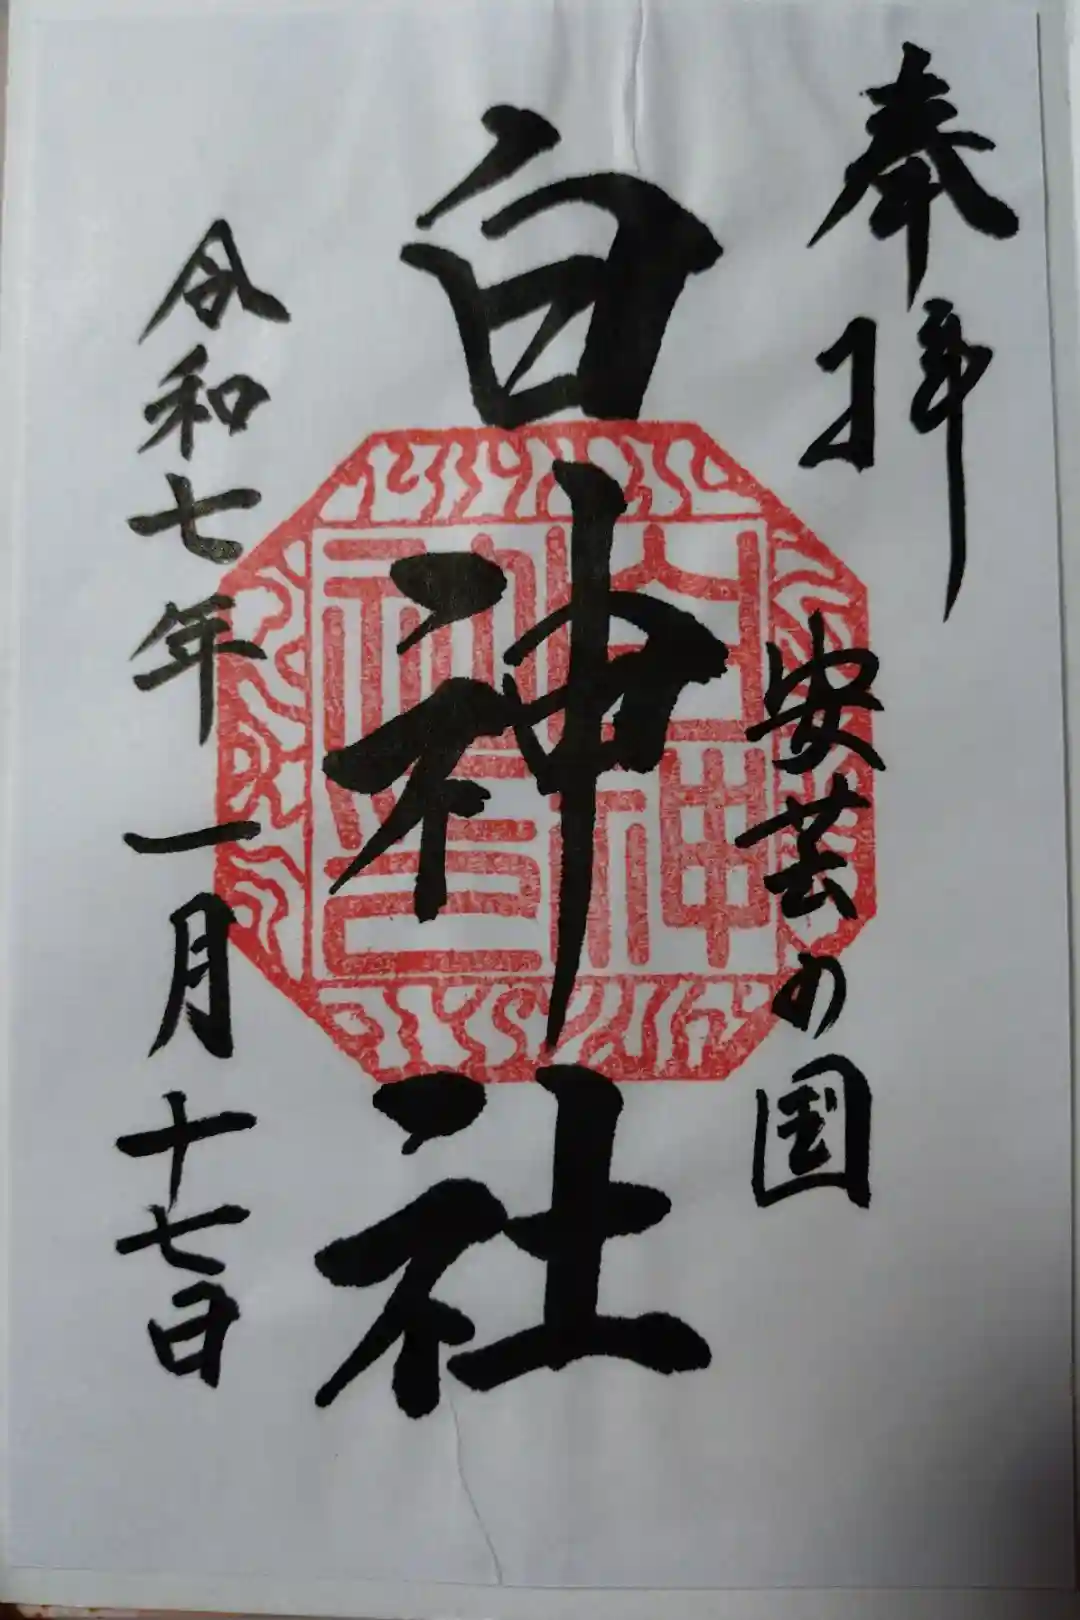 奉拝
安芸の国
白神社
白神社印
令和七年一月十七日